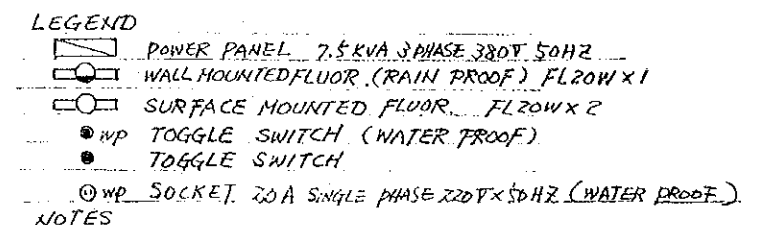 LEGEND
POWER PANEL 7.5 KVA 3 PHASE 380V 50HZ
WALL MOUNTED FLUOR. (RAIN PROOF) FL20W X 1
SURFACE MOUNTED FLUOR. FL20W X 2
WP TOGGLE SWITCH (WATER PROOF)
TOGGLE SWITCH
WP SOCKET 20A SINGLE PHASE 220V X 50HZ (WATER PROOF)
NOTES